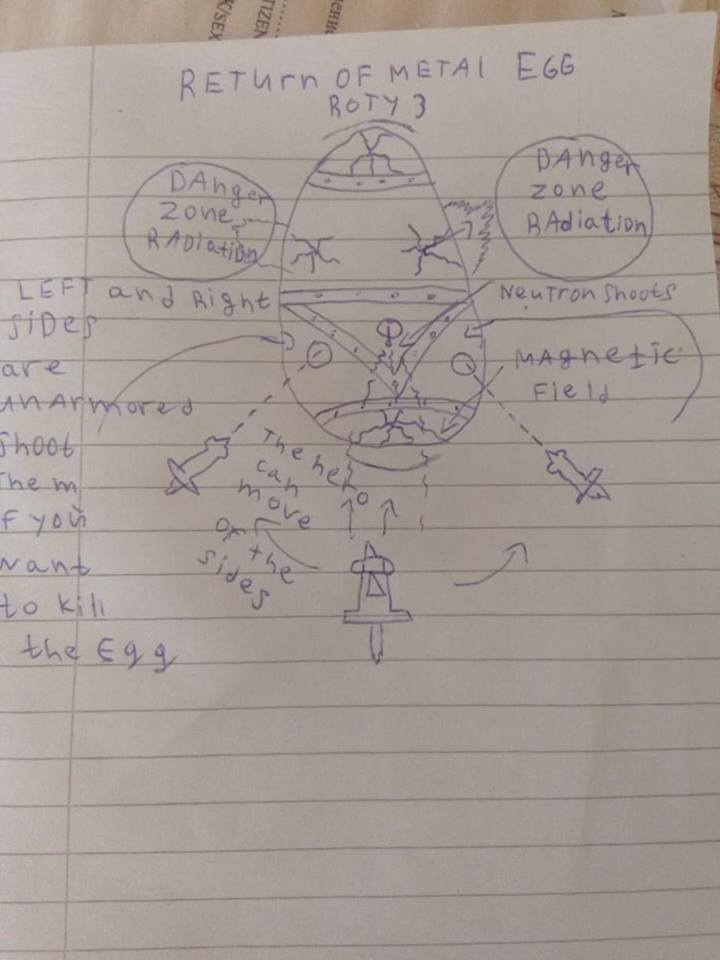 K/SEX
TIZEN
RETURN OF METAL EGG
ROTY 3
DAnger
zone
RADiation
DAnger
zone
RAdiation
LEFT and Right
SiDES
are
unArmored
Shoot
them
if you
want
to kill
the Egg
NeutronShoots
MAgnetic
Field
The hero
can
move
of the
sides